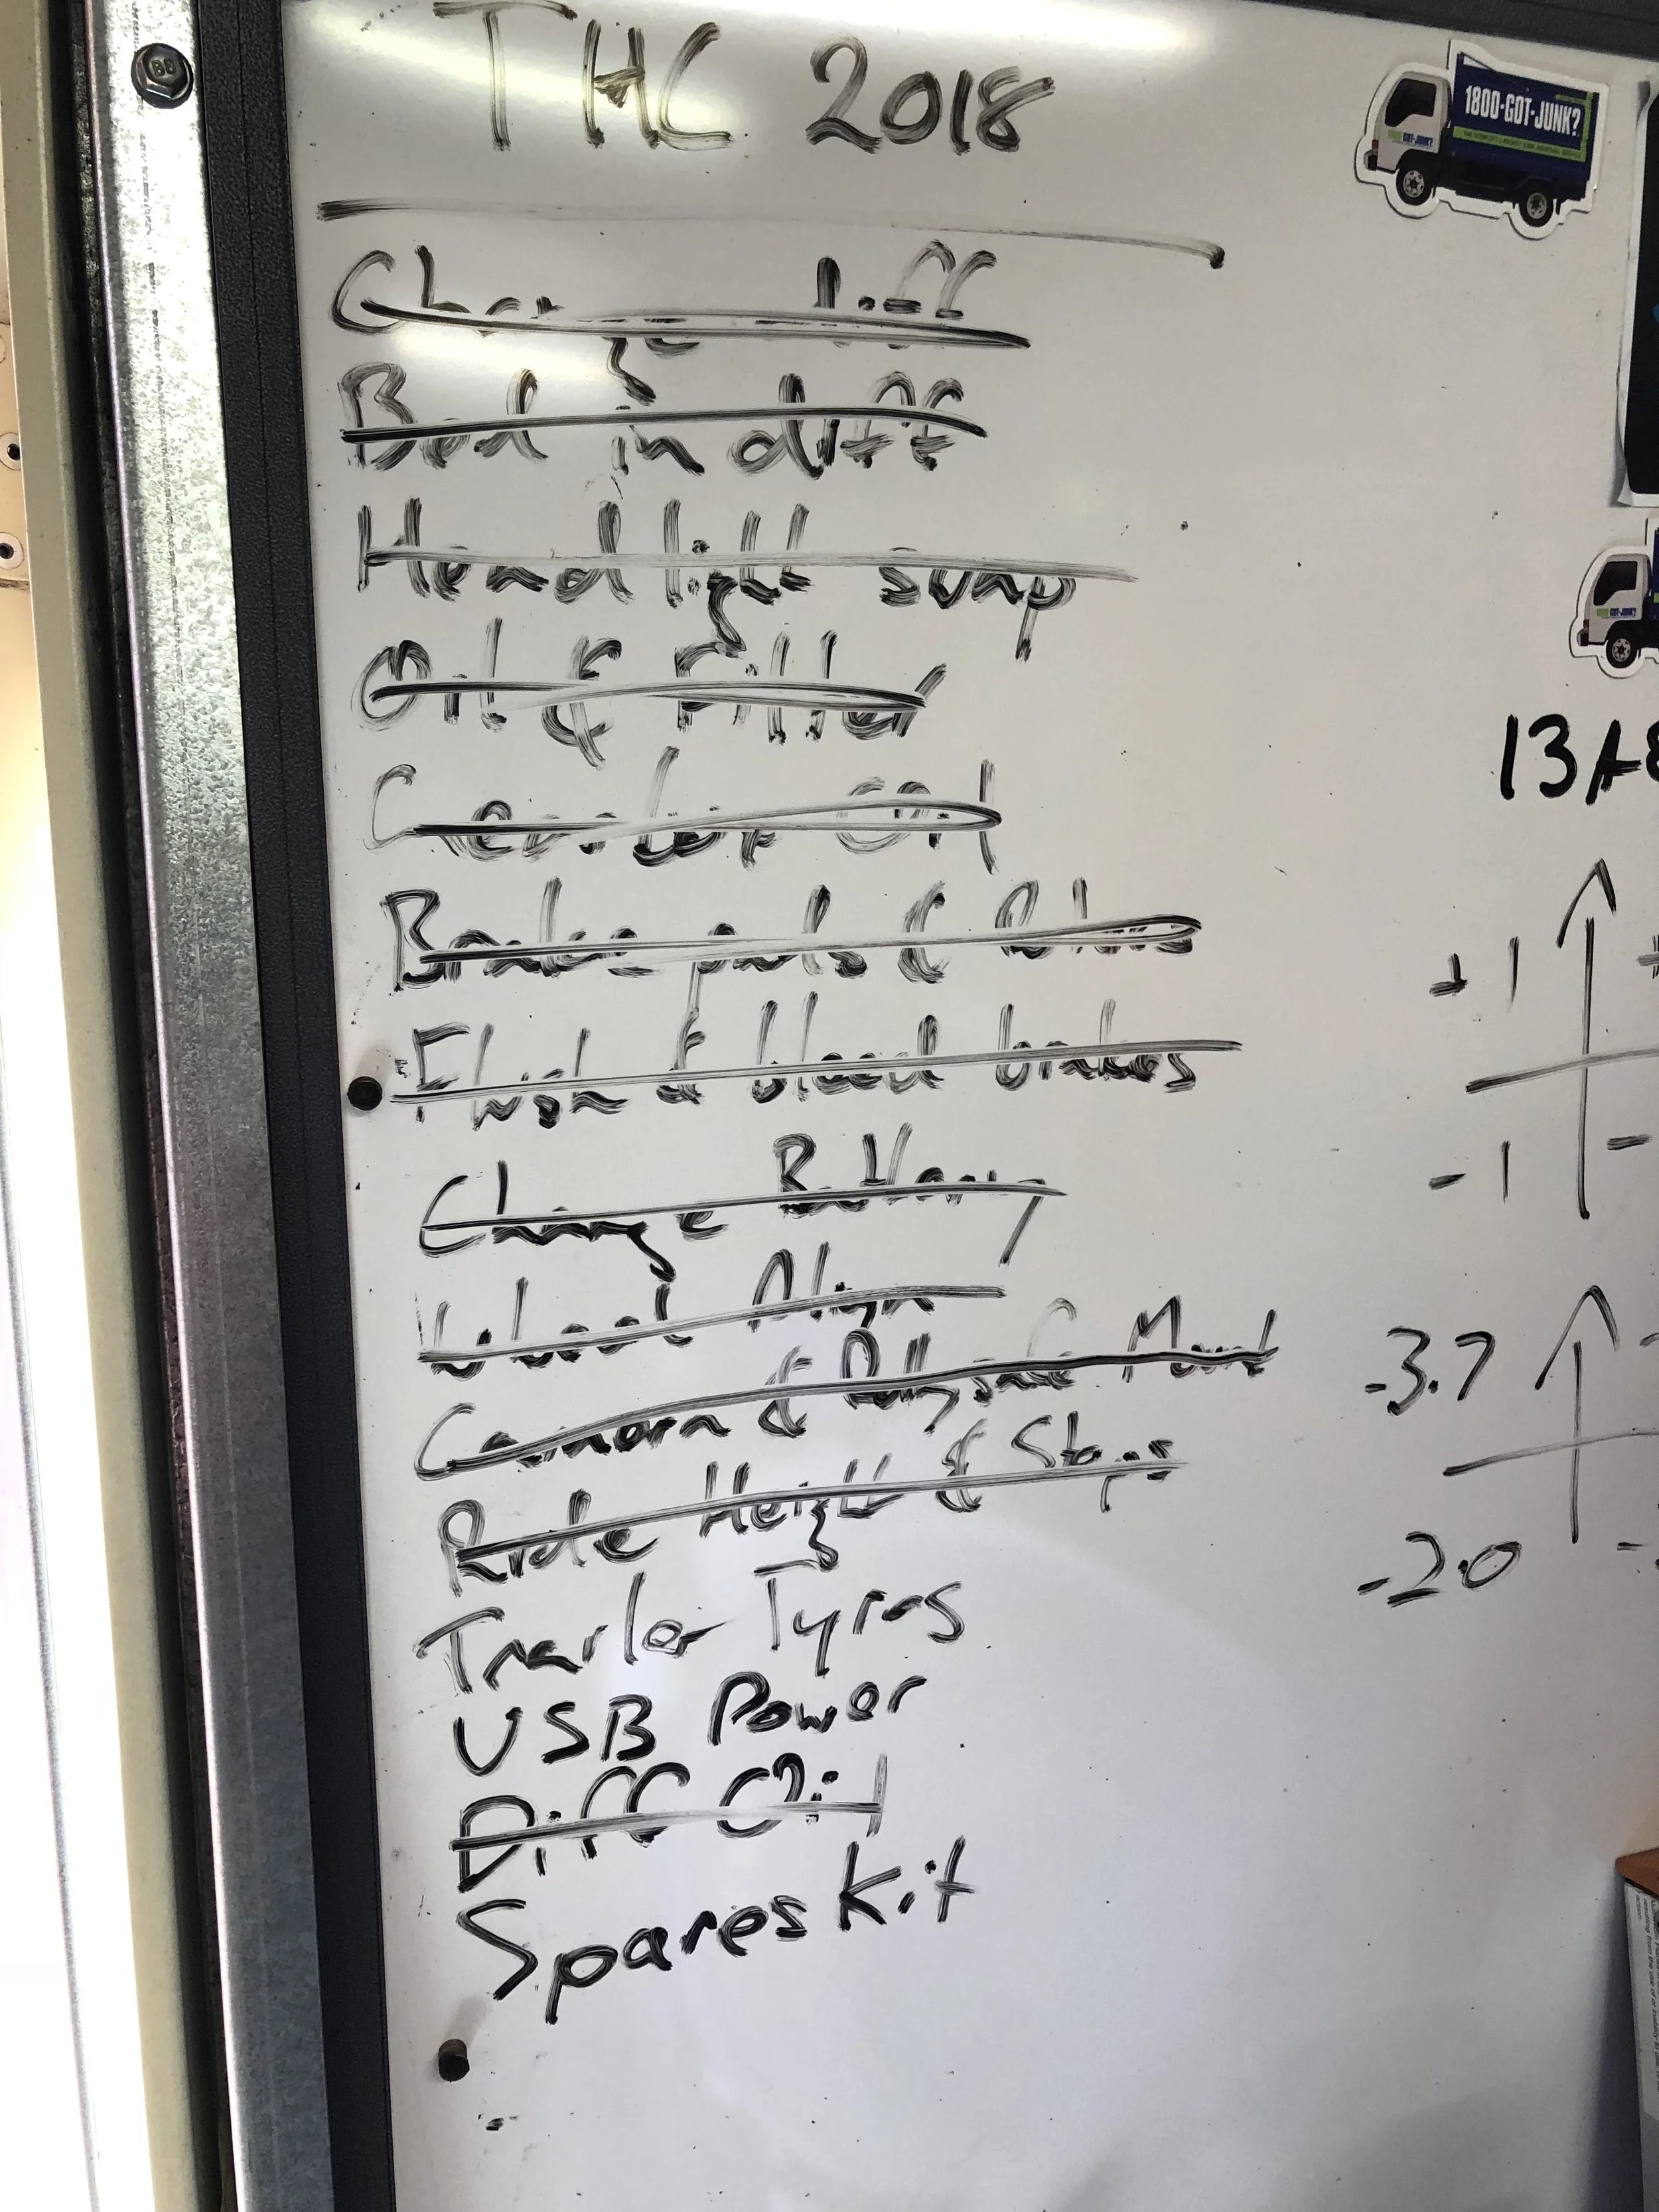 THC 2018
1800-GOT-JUNK?
Change diff
Bed in diff
Headlight swap
Oil & Filter
Gearbox Oil
Brake pads & Rotors
Flush & bleed brakes
Change Battery
Wheel Align
Camera & Rallysafe Mount
Ride Height & Stops
Trailer Tyres
USB Power
Diff Oil
Spares Kit
+1
-1 -
-3.7
-2.0 -